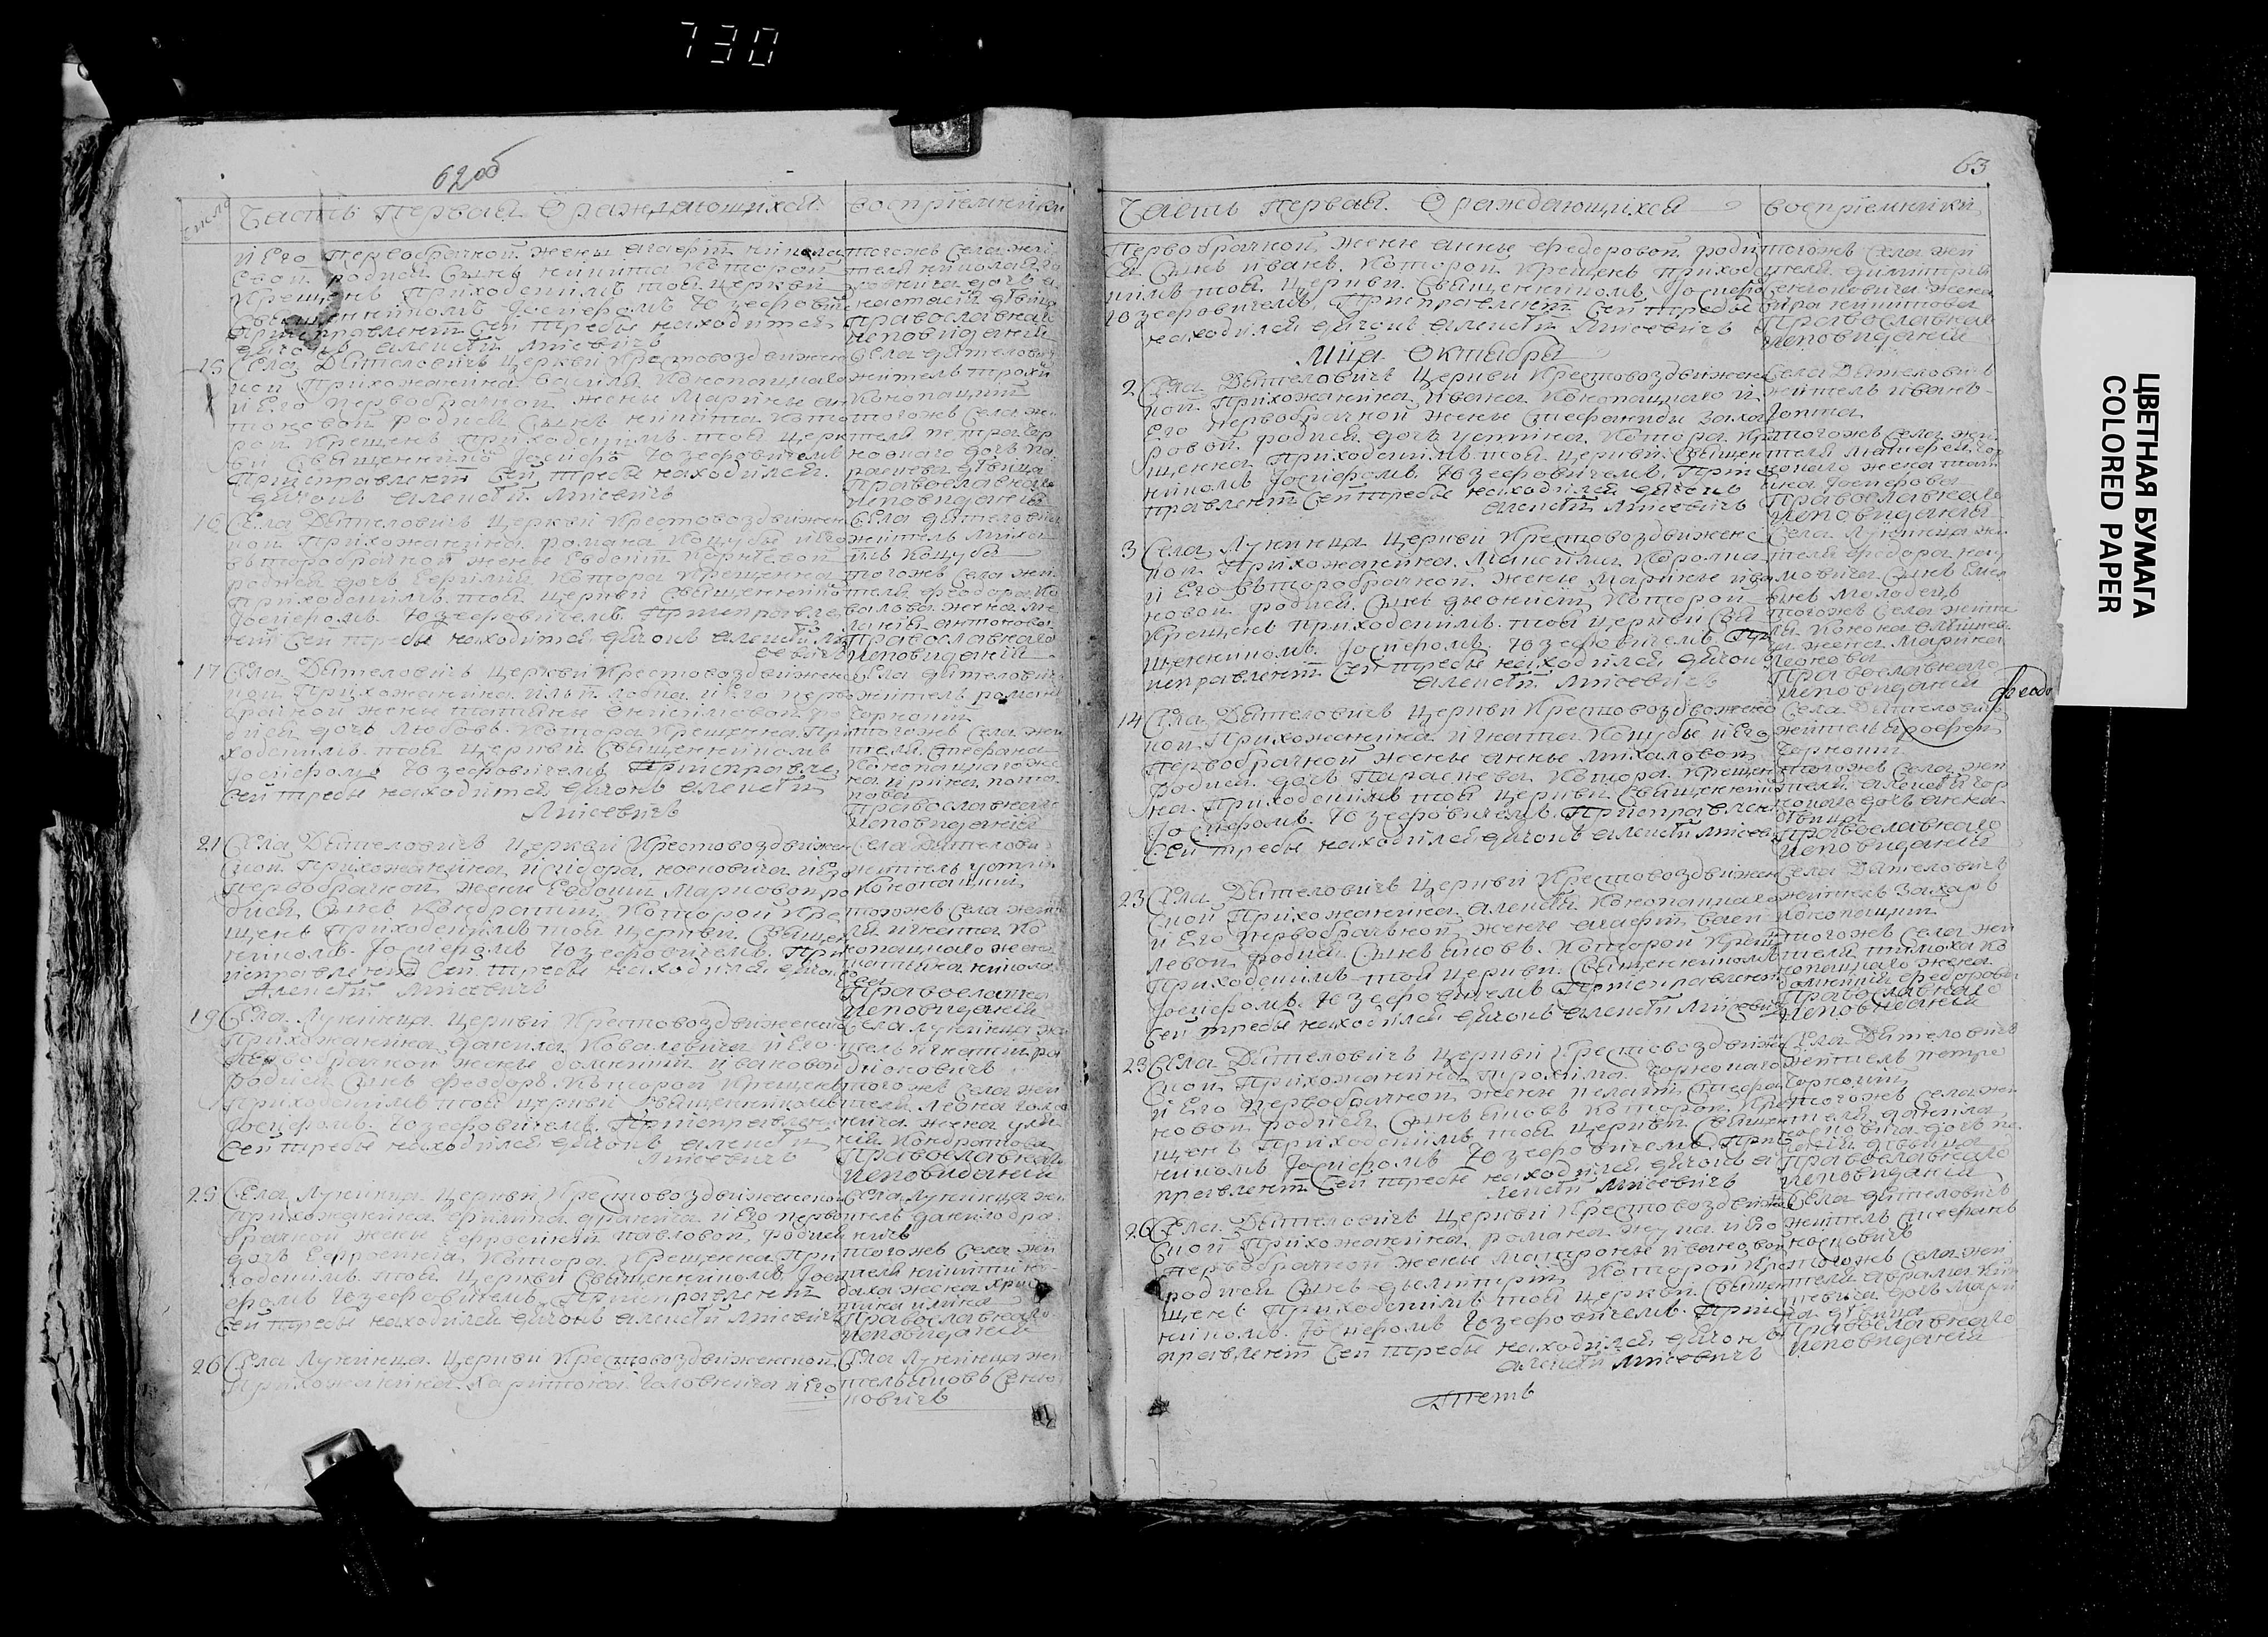 730
62об
Число
Часть Первая О раждающихся
Восприемники
и Его Первобрачной жены агафии никола
евой родися Сынъ никита Которой
Крещенъ Приходскимъ тоя церкви
Священникомъ Іосифомъ Юзефови
При исправлении Сей требы находился
дячокъ алексей Лисевичъ
тогожъ Села жи
теля николая
настасия девица
Православнаго
исповедания
15 Села Дятеловичъ Церкви Крестовоздвижен
ской Прихожанина василя Конопацкаго
и Его Первобрачной жены Марины ан
тоновой родися Сынъ никита Кото
рой Крещенъ Приходскимъ тоя церк
ви Священникомъ Іосифомъ Юзефовичемъ
При исправлении Сей требы находился
дячокъ алексей Лисевичъ
Села дятелович
житель трохи
Конопацкий
тогожъ Села жи
теля петра чор
наго дочъ па
раскева девица
Православнаго
исповедания
16 Села Дятеловичъ Церкви Крестовоздвижен
ской Прихожанина романа Коцубы и Его
второбрачной жены Евдокии Корнеевой
родися дочъ Ефимия Котора Крещенна
Приходскимъ тоя церкви Священникомъ
Іосифомъ Юзефовичемъ При исправле
нии Сей требы находился дячокъ алексей Ли
севичъ
Села дятелович
житель михаи
илъ Коцуба
тогожъ Села жи
теля феодора Ко
валова жена ме
ланія антонова
Православнаго
исповедания
17 Села Дятеловичъ Церкви Крестовоздвижен
ской Прихожанина Ильи лопа и Его перво
брачной жены татьяны анисимовой ро
дися дочъ Любовъ Котора Крещенна При
ходскимъ тоя Церкви Священникомъ
Іосифомъ Юзефовичемъ При исправле
Сей требы находился дячокъ алексей
Лисевичъ
Села дятелович
житель романъ
Чорноши
тогожъ Села жи
теля стефана
Конопацкаго же
на ирина пота
пова
Православнаго
исповедания
21 Села Дятеловичъ Церкви Крестовоздвижен
ской Прихожанина исидора носковича и Его
первобрачной жены Евдокии Марковой ро
дися Сынъ Кондратий Которой Кре
щенъ Приходскимъ тоя Церкви Священ
никомъ Іосифомъ Юзефовичемъ При
исправлении Сей требы находился дячокъ
Алексей Лисевичъ
Села Дятелович
житель устин
Конопацкий
тогожъ Села жи
ля игната Ко
нопацкаго жена
татьяна никола
ева
Православнаго
исповедания
19 Села Лунинца Церкви Крестовоздвиженской
Прихожанина данила Ковалевича и Его
Первобрачной жены домникии ивановой
родися Сынъ феодоръ Которой Крещенъ
Приходскимъ тоя церкви Священникомъ
Іосифомъ Юзефовичемъ При исправлении
Сей требы находился дячокъ алексей
Лисевичъ
Села лунинца жи
тель игнатий ра
дионовичъ
тогожъ Села жи
теля леона голов
нича жена ули
ния Кондратова
Православнаго
исповедания
25 Села Лунинца Церкви Крестовоздвиженской
Прихожанина филипа дранича и Его перво
брачной жены Ефросинии павловой родися
дочъ Ефросиния Котора Крещенна При
ходскимъ тоя Церкви Священникомъ Іоси
фомъ Юзефовичемъ При исправлении
Сей требы находился дячокъ алексей Лисевичъ
Села Лунинца жи
тель данило дра
ничъ
тогожъ Села жи
теля никити
жена хрис
тина
Православнаго
исповедания
26 Села Лунинца Церкви Крестовоздвиженской
Прихожанина Харитона Головнича и Его
Села Лунинца жи
тель яковъ Семе
новичъ
63
Часть Первая О раждающихся
Восприемники
Первобрачной жены анны федоровой роди
ся Сынъ иванъ Которой Крещенъ Приход
скимъ тоя Церкви Священникомъ Іосифо
Юзефовичемъ При исправлении Сей требы
находился дячокъ алексей Лисевичъ
тогожъ Села жи
теля димитрия
Семеновича жена
вера никитова
Православнаго
исповедания
Мца Октября
2 Села Дятеловичъ Церкви Крестовоздвижен
ской Прихожанина Ивана Конопацкаго и
Его Первобрачной жены Стефаниды Заха
ровой родися дочъ устина Котора Кре
щенна Приходскимъ тоя церкви Священ
никомъ Іосифомъ Юзефовичемъ При ис
правлении Сей требы находился дячокъ
алексей Лисевичъ
Села Дятеловичъ
житель иванъ
Лопта
тогожъ Села жи
теля матфея чор
нонаго жена тат
яна Іосифова
Православнаго
исповедания
3 Села Лунинца Церкви Крестовоздвиженс
кой Прихожанина Маисимы
и Его второбрачной жены Марины ива
новой родися Сынъ дионисий Которой
Крещенъ Приходскимъ тоя церкви Свя
щенникомъ Іосифомъ Юзефовичемъ При
исправлении Сей требы находился дячокъ
алексей Лисевичъ
Села Лунинца жи
теля федора нау
мовича Сынъ Емел
янъ молодецъ
тогожъ Села жите
ля Конона
жена Марина
леонова
Православнаго
исповедания
14 Села Дятеловичъ Церкви Крестовоздвижен
ской Прихожанина Игната Коцубы и Его
Первобрачной жены анны михаловой
родися дочъ Параскева Котора Крещен
на Приходскимъ тоя церкви Священником
Іосифомъ Юзефовичемъ При исправлен
Сей требы находился дячокъ алексей Лисев
Села Дятелович
житель ерофей
Чорноши
тогожъ Села жи
теля алексея чор
нонаго дочъ анна
девица
Православнаго
исповедания
23 Села Дятеловичъ Церкви Крестовоздвижен
ской Прихожанина Алексея Конопацкаго
и Его Первобрачной жены агафии васи
левой родися Сынъ яковъ Которой Крещ
Приходскимъ тоя Церкви Священникомъ
Іосифомъ Юзефовичемъ При исправлении
Сей требы находился дячокъ алексей Лисевичъ
Села Дятеловичъ
житель Захаръ
Конопацкий
тогожъ Села жи
теля тимоха Ко
нопацкаго жена
домникия федорова
Православнаго
исповедания
23 Села Дятеловичъ Церкви Крестовоздвиже
ской Прихожанина трохима Чорнонаго
и Его Первобрачной жены пелагии Стефа
новой родися Сынъ яковъ Которой Кре
щенъ Приходскимъ тоя церкви Священ
никомъ Іосифомъ Юзефовичемъ При ис
правлении Сей требы находился дячокъ а
лексей Лисевичъ
Села Дятеловичъ
житель петро
Чорноший
тогожъ Села жи
теля данила
дочъ пе
лагия девица
Православнаго
исповедания
26 Села Дятеловичъ Церкви Крестовоздвиже
ской Прихожанина романа жука и Его
первобрачной жены Матроны ивановой
родися Сынъ дымитрий Которой Кре
щенъ Приходскимъ тоя церкви Священ
никомъ Іосифомъ Юзефовичемъ При ис
правлении Сей требы находился дячокъ
алексей Лисевичъ
Села дятеловичъ
житель Стефанъ
носковичъ
тогожъ Села жи
теля абрама
дочъ мари
на девица
Православнаго
исповедания
ЦВЕТНАЯ БУМАГА
COLORED PAPER